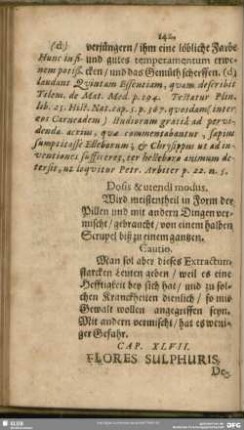 142.
(d) verjüngern / ihm eine löbliche Farbe
Hunc in fi- und gutes temperamentum erwe-
nem potiss. cken / und das Gemüth scherffen. (d)
laudant Quintam Essentiam, quam describit
Tolem. de Mat. Med. p. 194. Testatur Plin.
lib. 25. Hist. Nat. cap. 5. p. 367. quosdam (inter
eos Carneadem) studiorum gratiâ ad pervi-
denda acrius, quæ commentabantur, sæpius
sumpsitasse Elleborum; & Chrysippus ut ad in-
ventiones sufficeret, ter helleboro animum de-
tersit, ut loquitur Petr. Arbiter p. 22. n. 5.
Dosis & utendi modus.
Wird meistentheil in Form der
Pillen und mit andern Dingen ver-
mischt / gebraucht / von einem halben
Scrupel biß zu einem gantzen.
Cautio.
Man sol aber dieses Extractum
starcken Leuten geben / weil es eine
Hefftigkeit bey sich hat / und zu sol-
chen Kranckheiten dienlich / so mit
Gewalt wollen angegriffen seyn.
Mit andern vermischt / hat es weni-
ger Gefahr.
CAP. XLVII.
FLORES SULPHURIS
De
SLUB
DFG